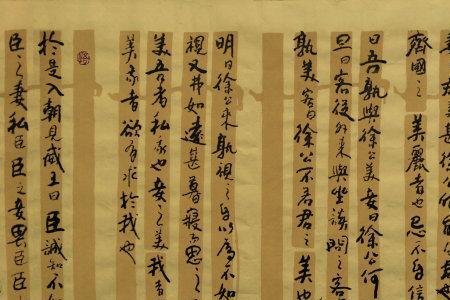 齊國之美麗者也忌不自信
曰吾孰與徐公美妾曰徐公何
旦日客從外來與坐談問之客
孰美客曰徐公不若君之美也
明日徐公來孰視之自以為不如
視又弗如遠甚暮寢而思之
美吾者私我也妾之美我者
美我者欲有求於我也
於是入朝見威王曰臣誠知不
臣之妻私臣臣之妾畏臣臣